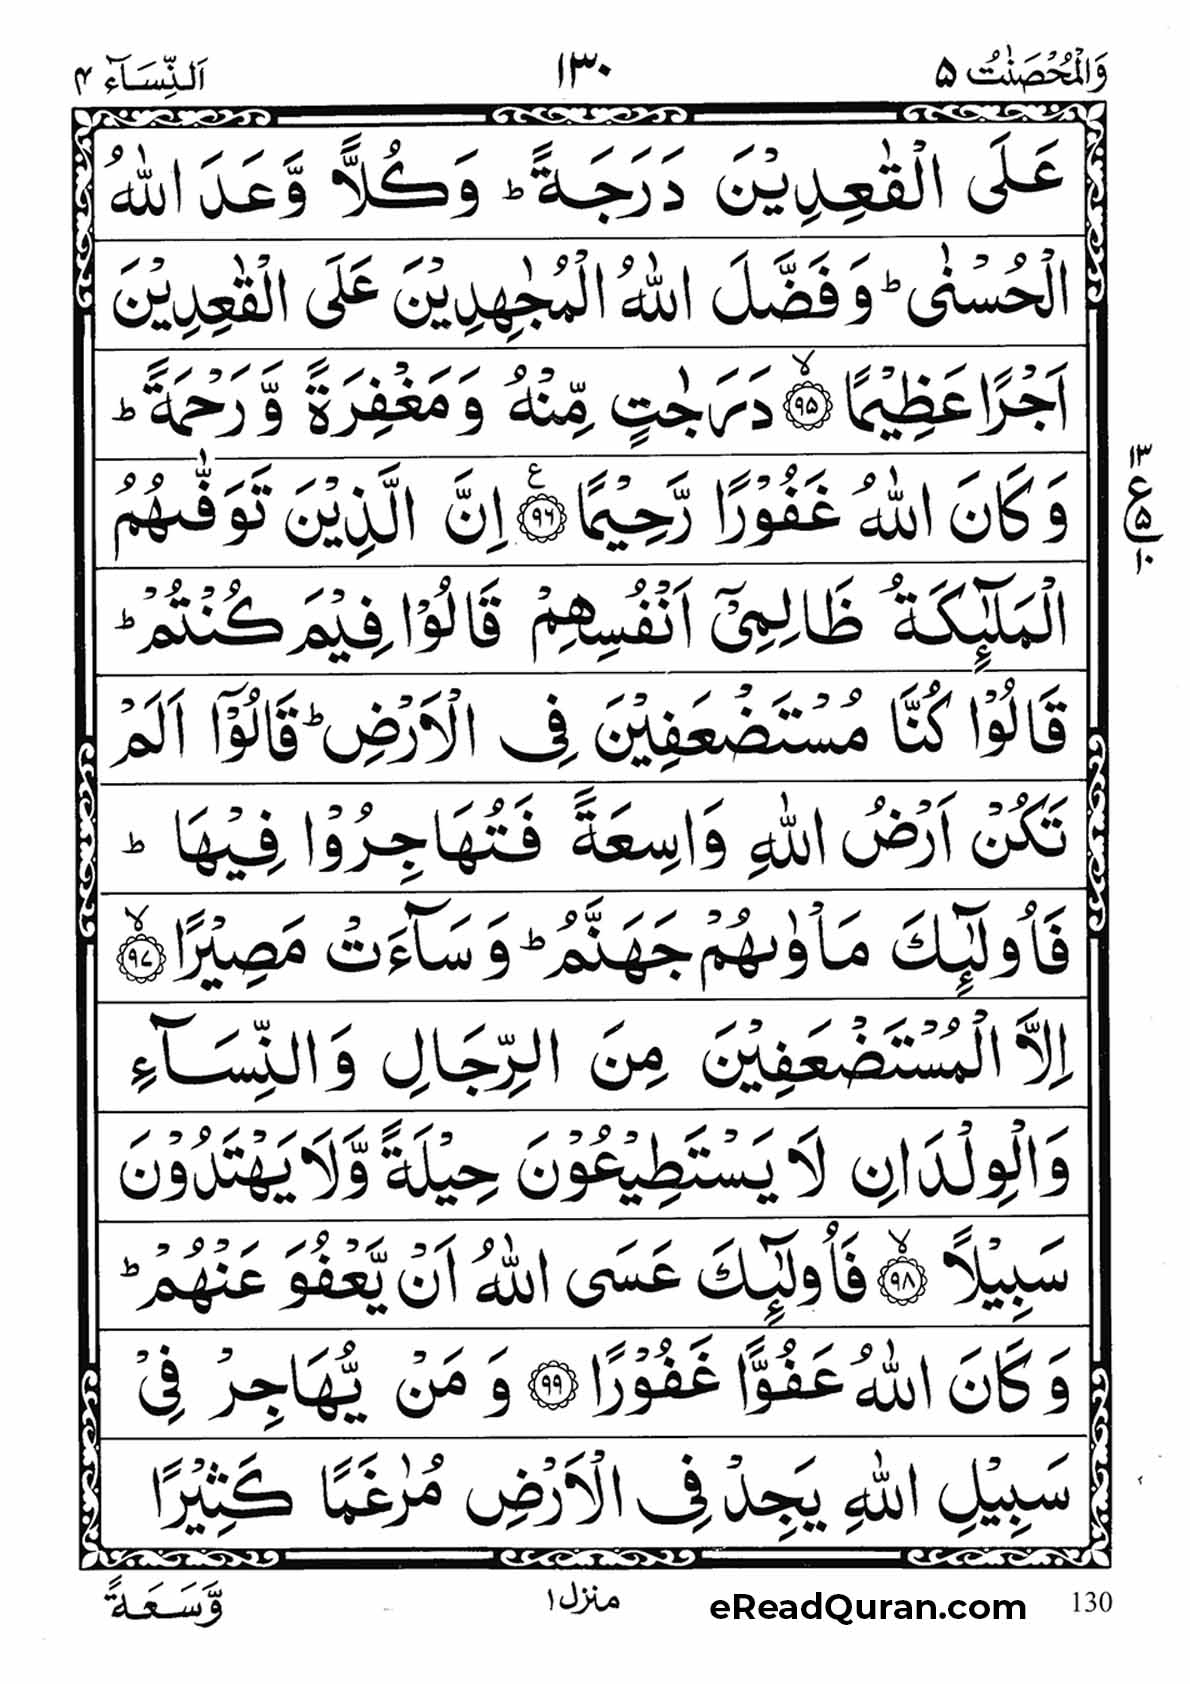 وَالْمُحْصَنٰتُ ۵ ۱۳۰ اَلنِّسَآء ۴
عَلَى الْقٰعِدِيْنَ دَرَجَةً ؕ وَكُلًّا وَّعَدَ اللّٰهُ
الْحُسْنٰى ؕ وَفَضَّلَ اللّٰهُ الْمُجٰهِدِيْنَ عَلَى الْقٰعِدِيْنَ
اَجْرًا عَظِيْمًا ۙ۹۵ دَرَجٰتٍ مِّنْهُ وَمَغْفِرَةً وَّرَحْمَةً ؕ
وَكَانَ اللّٰهُ غَفُوْرًا رَّحِيْمًا ۹۶ ع اِنَّ الَّذِيْنَ تَوَفّٰىهُمُ
۱۳
ع
۵
۱۰
الْمَلٰٓئِكَةُ ظَالِمِىْٓ اَنْفُسِهِمْ قَالُوْا فِيْمَ كُنْتُمْ ؕ
قَالُوْا كُنَّا مُسْتَضْعَفِيْنَ فِى الْاَرْضِ ؕ قَالُوْٓا اَلَمْ
تَكُنْ اَرْضُ اللّٰهِ وَاسِعَةً فَتُهَاجِرُوْا فِيْهَا ؕ
فَاُولٰٓئِكَ مَاْوٰىهُمْ جَهَنَّمُ ؕ وَسَآءَتْ مَصِيْرًا ۙ۹۷
اِلَّا الْمُسْتَضْعَفِيْنَ مِنَ الرِّجَالِ وَالنِّسَآءِ
وَالْوِلْدَانِ لَا يَسْتَطِيْعُوْنَ حِيْلَةً وَّلَا يَهْتَدُوْنَ
سَبِيْلًا ۙ۹۸ فَاُولٰٓئِكَ عَسَى اللّٰهُ اَنْ يَّعْفُوَ عَنْهُمْ ؕ
وَكَانَ اللّٰهُ عَفُوًّا غَفُوْرًا ۹۹ وَمَنْ يُّهَاجِرْ فِىْ
سَبِيْلِ اللّٰهِ يَجِدْ فِى الْاَرْضِ مُرٰغَمًا كَثِيْرًا
وَّسَعَةً
منزل ۱
eReadQuran.com
130